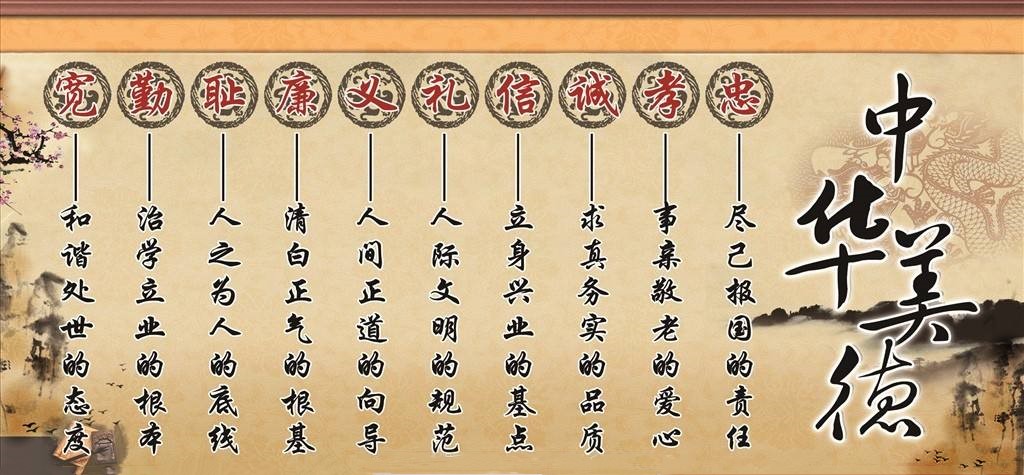 中华美德
忠
尽己报国的责任
孝
事亲敬老的爱心
诚
求真务实的品质
信
立身兴业的基点
礼
人际文明的规范
义
人间正道的向导
廉
清白正气的根基
耻
人之为人的底线
勤
治学立业的根本
宽
和谐处世的态度